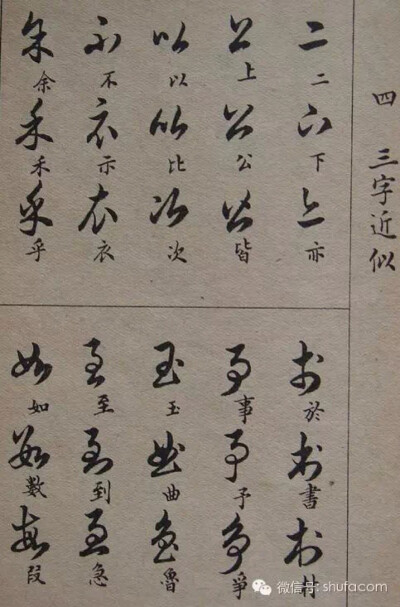 四 三字近似
二 下 亦
上 公 皆
以 比 次
不 示 衣
余 禾 乎
於 書
事 予 爭
玉 曲 魯
至 到 急
如 數 段
微信号: shufacom